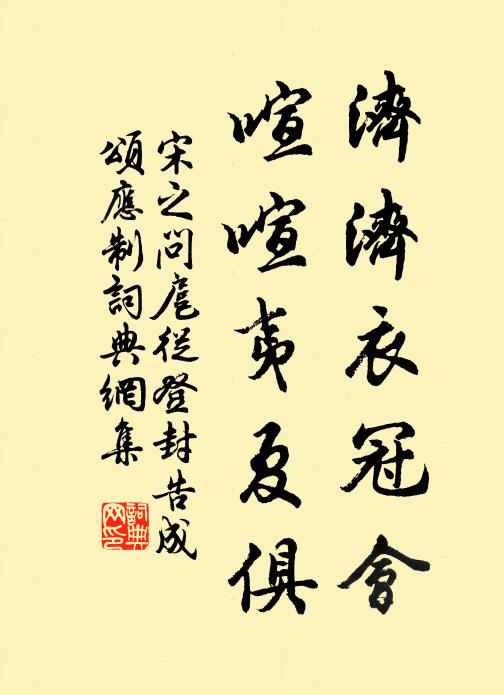 濟濟衣冠會
喧喧夷夏俱
宋之問扈從登封告成
頌應制詞典網集
詞典
網印